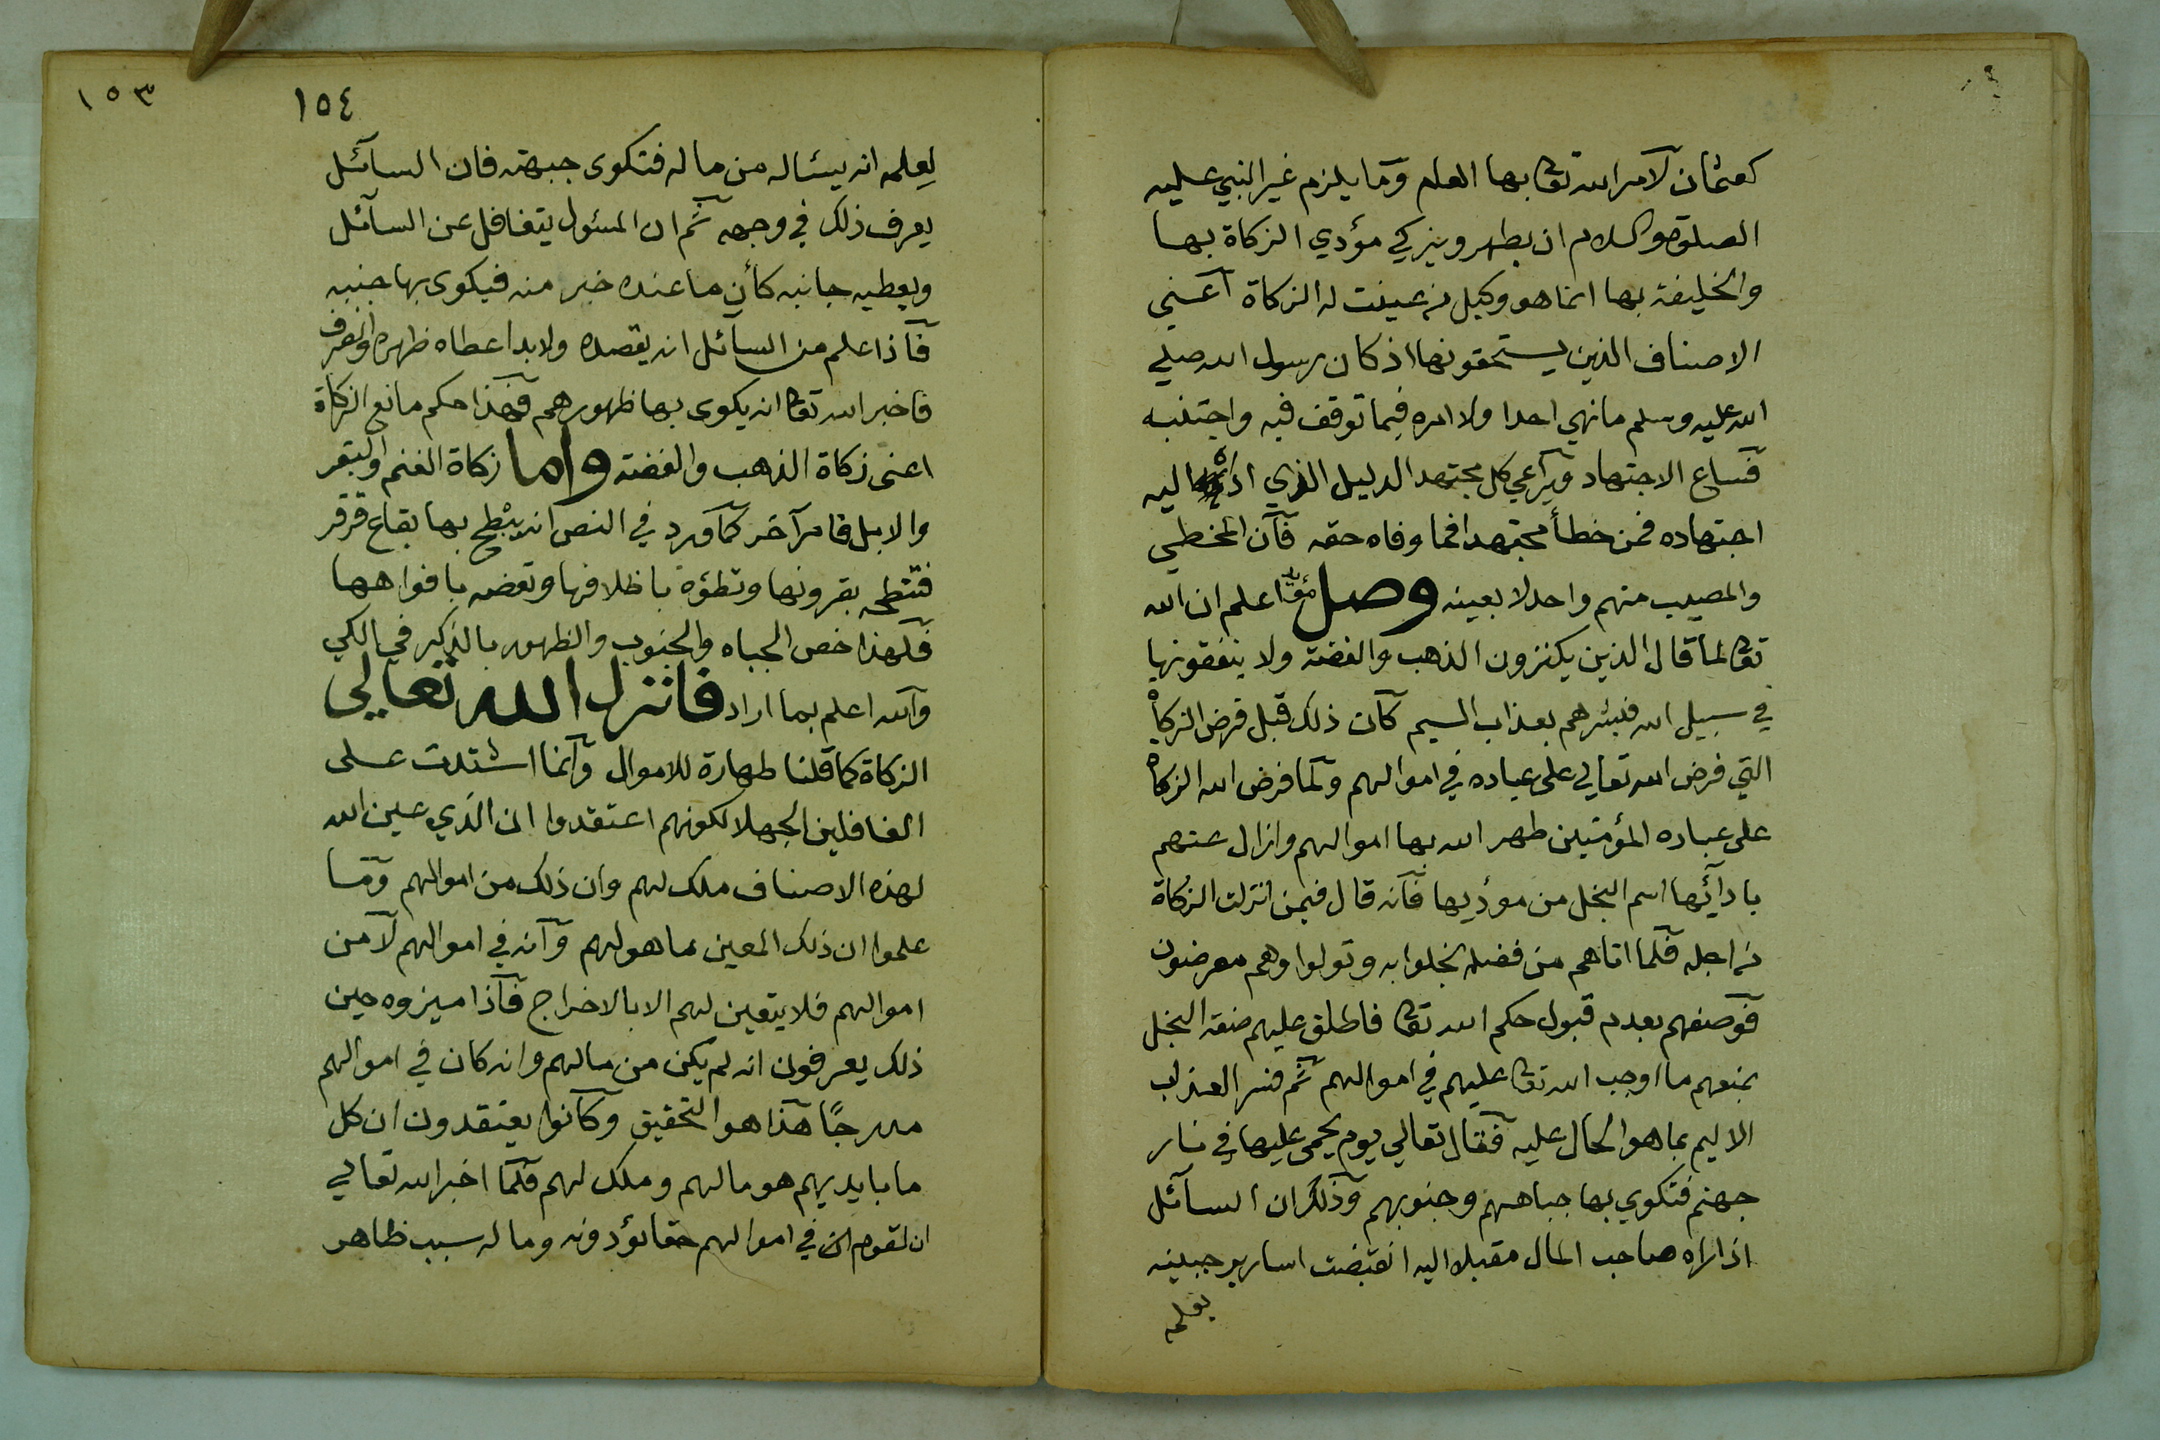 كعثمان لامر الله تعا بها العلم وما يلزم غير النبي عليه
الصلوة والسلام ان يطهر ويزكي مؤدي الزكاة بها
والخليفة بها انما هو وكيل من عينت له الزكاة اعني
الاصناف الذين يستحقونها اذ كان رسول الله صلي
الله عليه وسلم ما نهي احدا ولا امره فيما توقف فيه واجتنبه
فساغ الاجتهاد ويراعي كل مجتهد الدليل الذي اداه اليه
اجتهاده فمن خطأ مجتهدا فما وفاه حقه فان المخطي
والمصيب منهم واحد لا بعينه وصل اعلم ان الله
تعا لما قال الذين يكنزون الذهب والفضة ولا ينفقونها
في سبيل الله فبشرهم بعذاب اليم كان ذلك قبل فرض الزكاة
التي فرض الله تعالي على عباده في اموالهم ولما فرض الله الزكاة
على عباده المؤمنين طهر الله بها اموالهم وازال عنهم
بادآئها اسم البخل من مؤديها فانه قال فيمن انزلت الزكاة
من اجله فلما اتاهم من فضله بخلوا به وتولوا وهم معرضون
فوصفهم بعدم قبول حكم الله تعا فاطلق عليهم صفة البخل
بمنعهم ما اوجب الله تعا عليهم في اموالهم ثم فسر العذاب
الاليم بما هو الحال عليه فقال تعالي يوم يحمى عليها في نار
جهنم فتكوي بها جباههم وجنوبهم وذلك ان السآئل
اذا راه صاحب المال مقبلا اليه انقبضت اسارير جبينه
لعلمه
١٥٣
١٥٤
لعلمه انه يسئاله من ماله فتكوى جبهته فان السآئل
يعرف ذلك في وجهه ثم ان المسئول يتغافل عن السآئل
ويعطيه جانبه كأن ما عنده خبر منه فيكوى بها جنبه
فاذا علم من السآئل انه يقصده ولا بد اعطاه ظهره وانصرف
فاخبر الله تعا انه يكوى بها ظهورهم فهذا حكم مانع الزكاة
اعنى زكاة الذهب والفضة واما زكاة الغنم والبقر
والابل فامر آخر كما ورد في النص انه يبطح بها بقاع قرقر
فتنطحه بقرونها وتطؤه باظلافها وتعضه بافواهها
فلهذا خص الجباه والجنوب والظهور بالذكر في الكي
والله اعلم بما اراد فانزل الله تعالي
الزكاة كما قلنا طهارة للاموال وانما اشتدت على
الغافلين الجهلا لكونهم اعتقدوا ان الذي عين الله
لهذه الاصناف ملك لهم وان ذلك من اموالهم وما
علموا ان ذلك المعين ما هو لهم وانه في اموالهم لا من
اموالهم فلا يتعين لهم الا بالاخراج فاذا ميزوه حين
ذلك يعرفون انه لم يكن من مالهم وانه كان في اموالهم
مدرجًا هذا هو التحقيق وكانوا يعتقدون ان كل
ما بايديهم هو مالهم وملك لهم فلما اخبر الله تعالي
ان لقوم في اموالهم حقا يؤدونه وما له سبب ظاهر